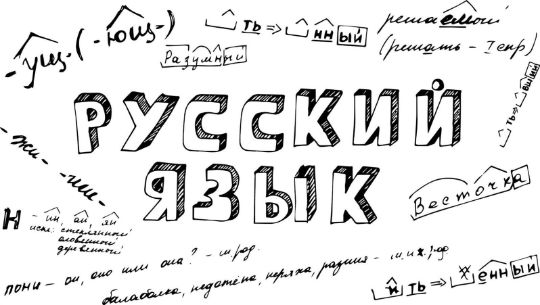 -ущ- (-ющ-)
ть ⇒ нный
решаемый
(решать - I спр)
Разумный
РУССКИЙ
ЯЗЫК
ть ⇒ вший
- жи - - ши -
Весточка
Н - ин, ан, ян
искл: стеклянный
оловянный
деревянный
пони - он, оно или она? - м.род.
балаболка, недотёпа, неряха, разиня -
ить ⇒ённый